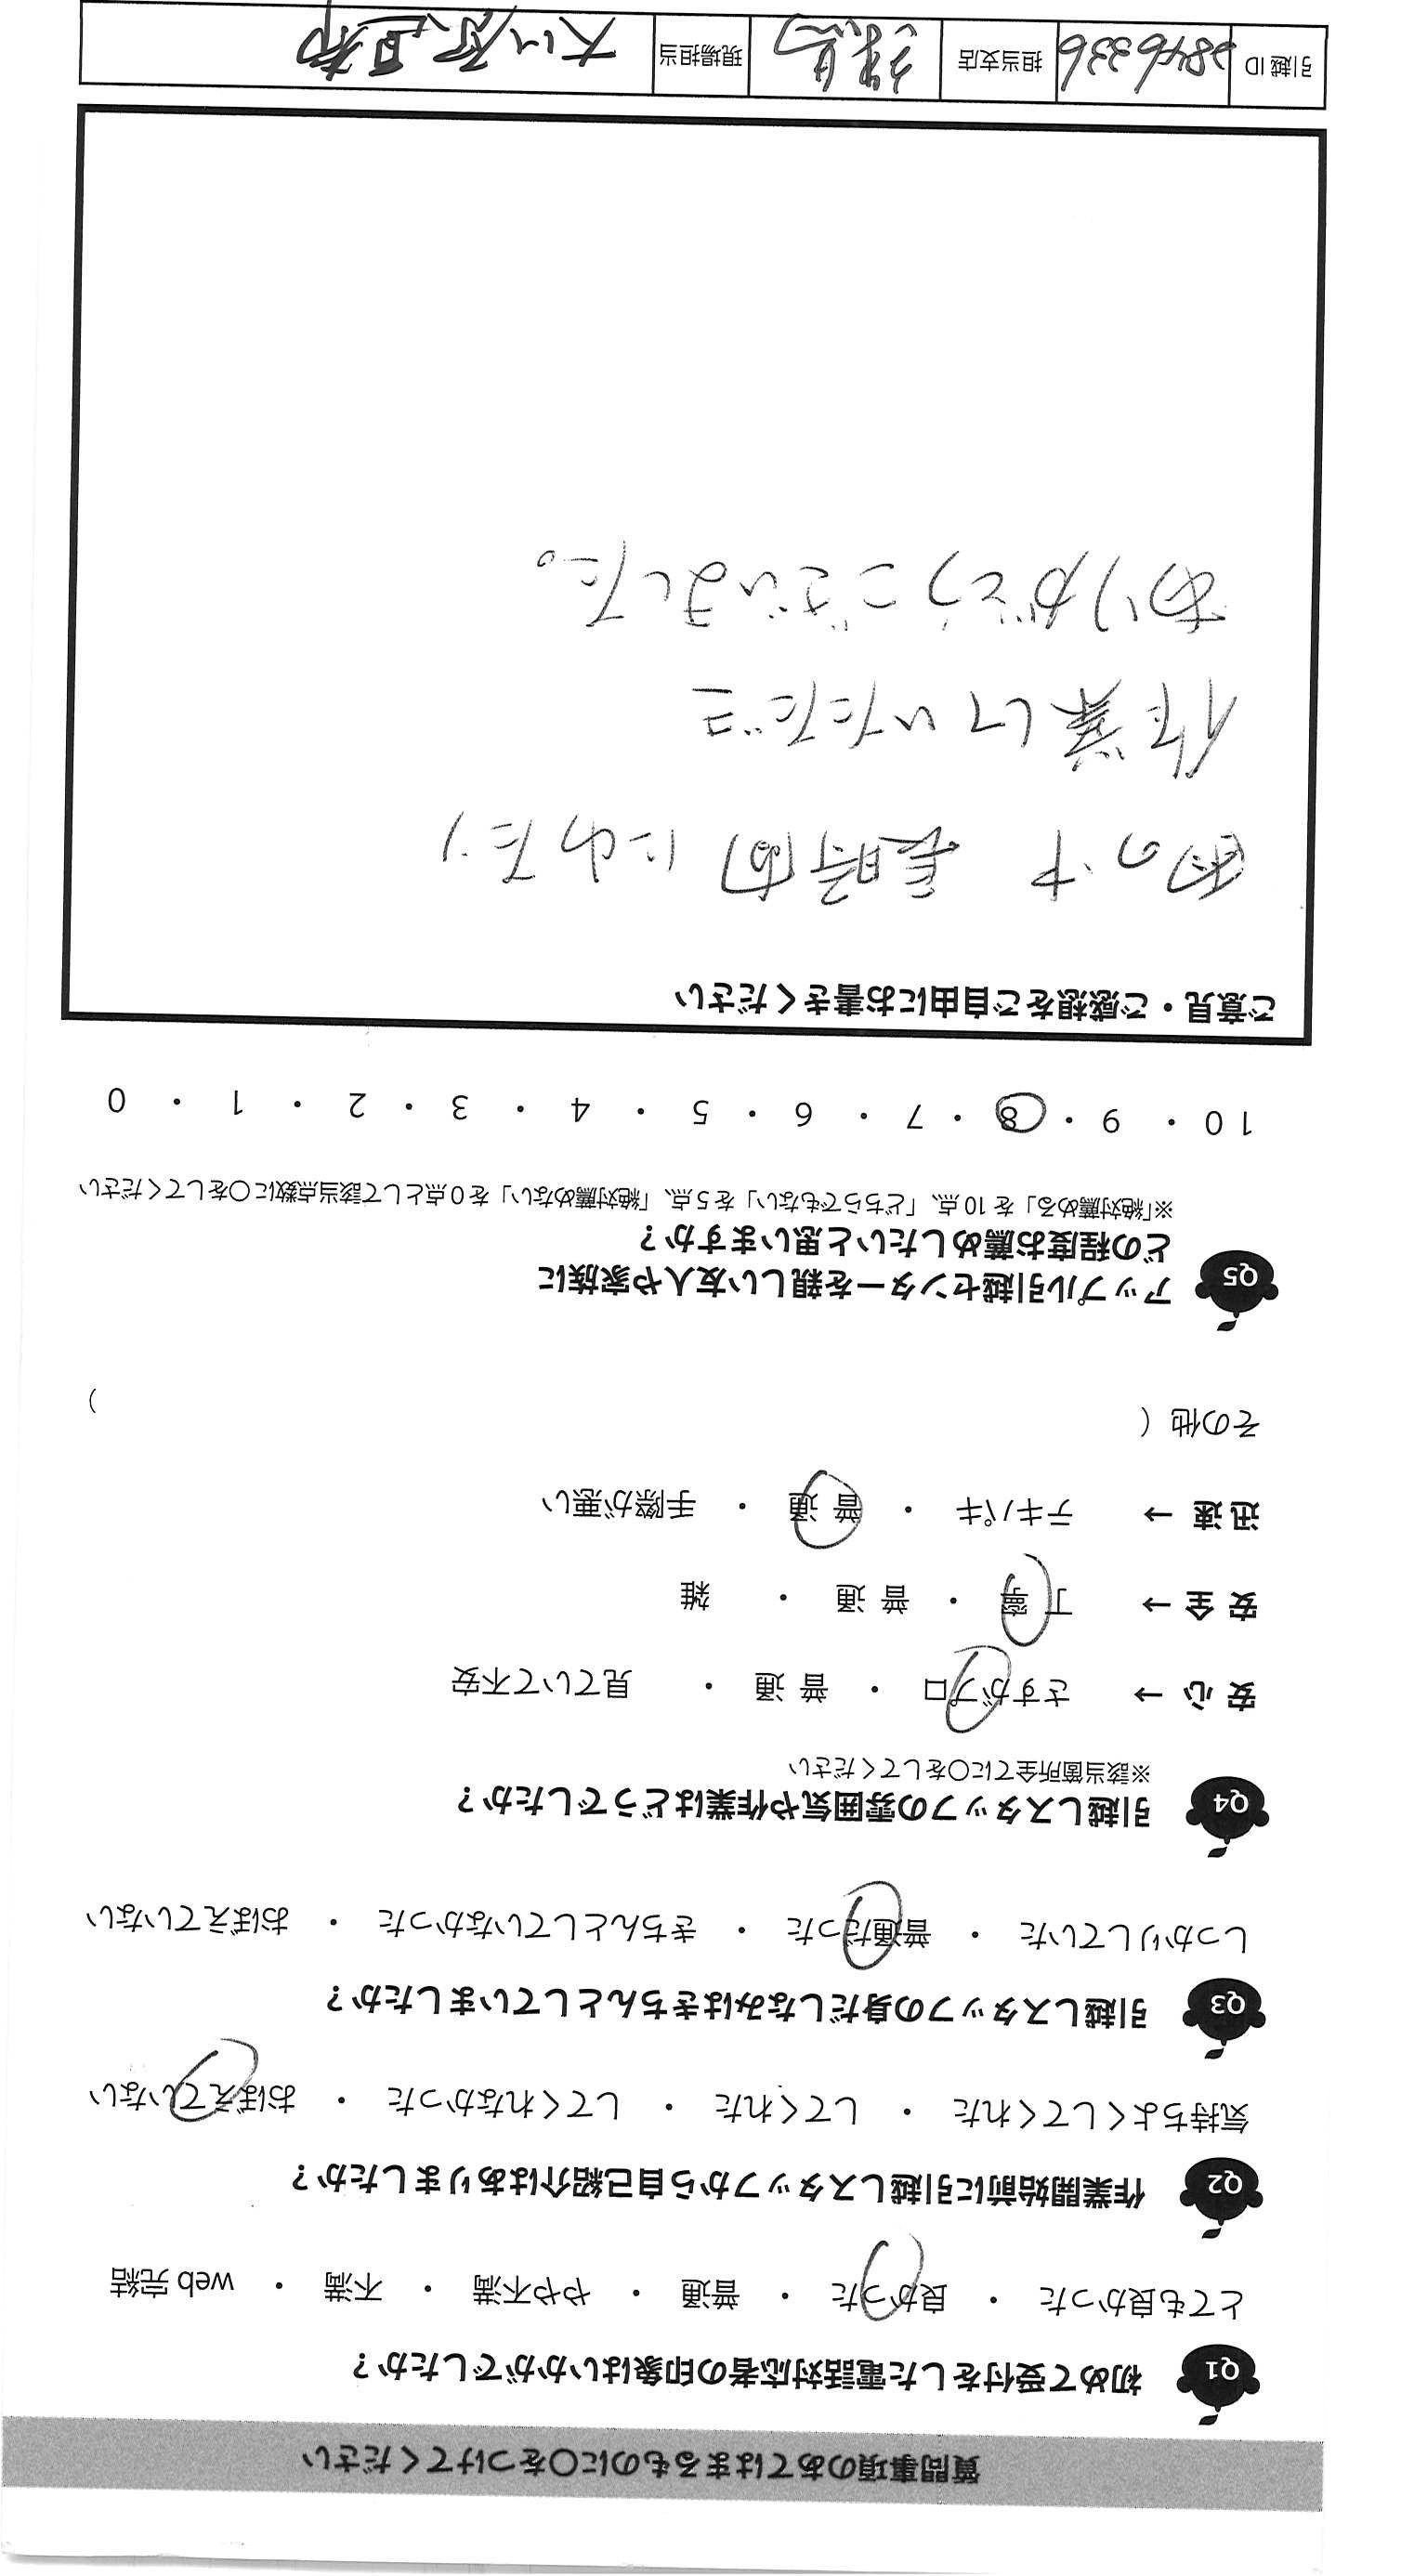 質問事項のあてはまるものに○をつけてください
Q1 初めて受付をした電話対応者の印象はいかがでしたか？
とても良かった ・ 良かった ・ 普通 ・ やや不満 ・ 不満 ・ web 完結
Q2 作業開始前に引越しスタッフから自己紹介はありましたか？
気持ちよくしてくれた ・ してくれた ・ してくれなかった ・ おぼえていない
Q3 引越しスタッフの身だしなみはきちんとしていましたか？
しっかりしていた ・ 普通だった ・ きちんとしていなかった ・ おぼえていない
Q4 引越しスタッフの雰囲気や作業はどうでしたか？
※該当箇所全てに○をしてください
安 心 → さすがプロ ・ 普 通 ・ 見ていて不安
安 全 → 丁 寧 ・ 普 通 ・ 雑
迅 速 → テキパキ ・ 普 通 ・ 手際が悪い
その他 ( )
Q5 アップル引越センターを親しい友人や家族に
どの程度お薦めしたいと思いますか？
※「絶対薦める」を 10 点、「どちらでもない」を 5 点、「絶対薦めない」を 0 点として該当点数に○をしてください
10 ・ 9 ・ 8 ・ 7 ・ 6 ・ 5 ・ 4 ・ 3 ・ 2 ・ 1 ・ 0
ご意見・ご感想をご自由にお書きください
雨の中 長時間にわたり
作業していただき
ありがとうございました。
引越 ID 2846336 担当支店 練馬 現場担当